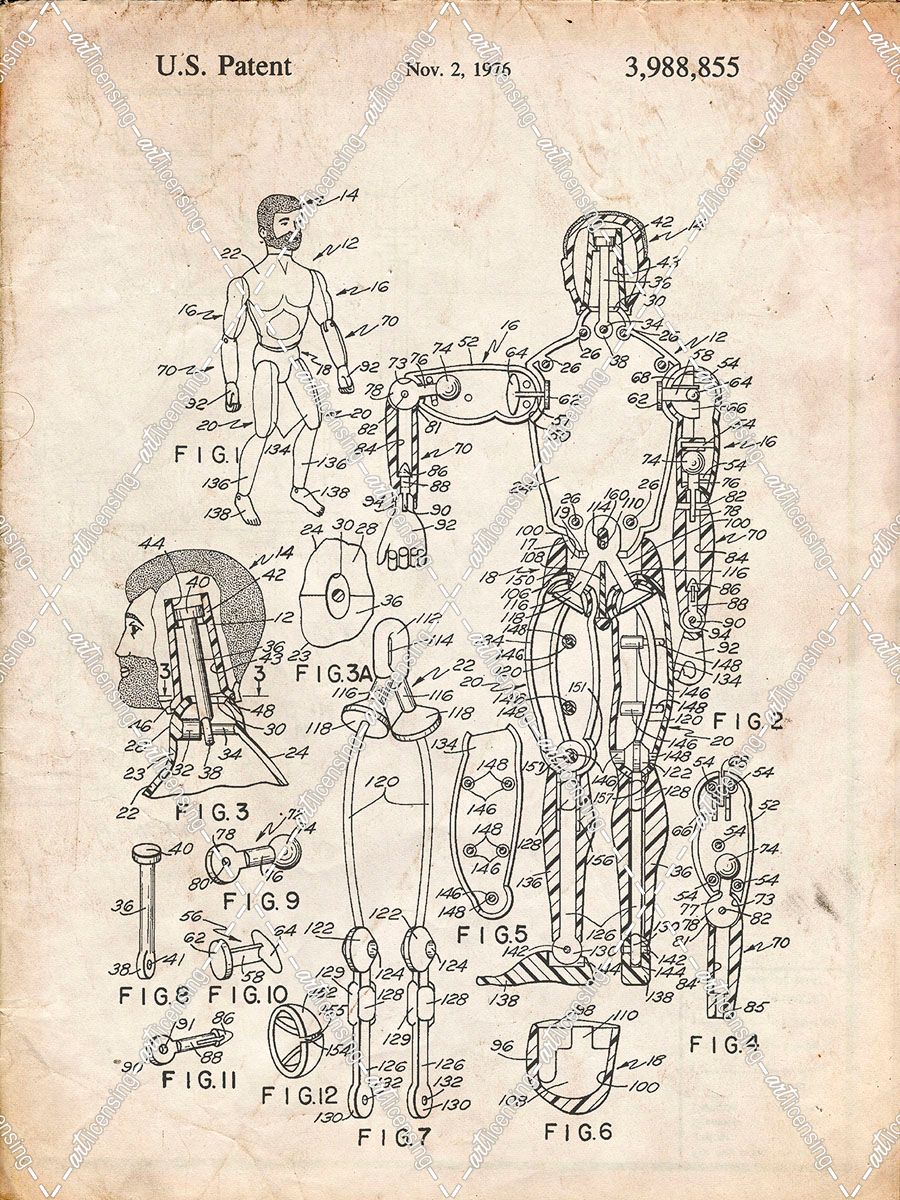 U.S. Patent
Nov. 2, 1976
3,988,855
14
22
12
16
16
70
70
92
92
18
20
20
134
136
136
138
138
FIG.1
42
14
43
36
30
34
26
26
38
12
26
26
58
54
68
64
62
56
54
16
74
54
76
82
78
100
70
84
116
86
88
90
94
92
73
76
52
16
74
64
78
62
81
82
84
70
86
88
94
90
92
26
160
26
114
110
100
17
108
18
150
106
116
118
148
146
120
20
151
148
134
146
148
120
20
146
148
122
128
FIG.2
146
157
128
136
156
36
126
142
130
144
138
142
144
138
44
40
14
42
12
36
43
3
3
46
48
26
30
23
32
34
38
24
22
FIG.3
24
30
28
36
23
FIG.3A
112
114
22
116
116
118
118
120
122
122
129
124
124
128
128
129
126
126
132
132
130
130
FIG.7
134
148
146
148
146
146
148
FIG.5
54
52
66
54
74
54
54
73
77
78
82
81
70
84
85
FIG.4
78
80
FIG.9
40
36
38
41
FIG.8
56
62
64
58
FIG.10
91
86
90
88
FIG.11
152
154
FIG.12
98
110
96
18
100
108
FIG.6
art licensing